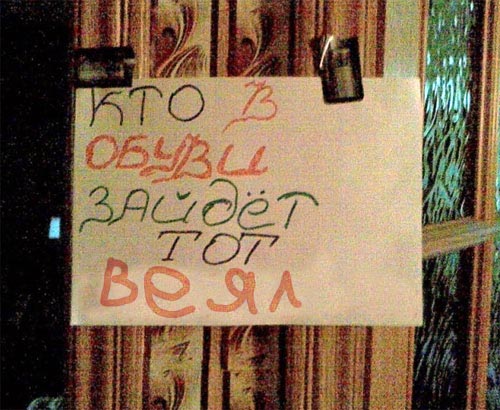 КТО В
ОБУВИ
ЗАЙДЁТ
ТОТ
ВЕЯЛ